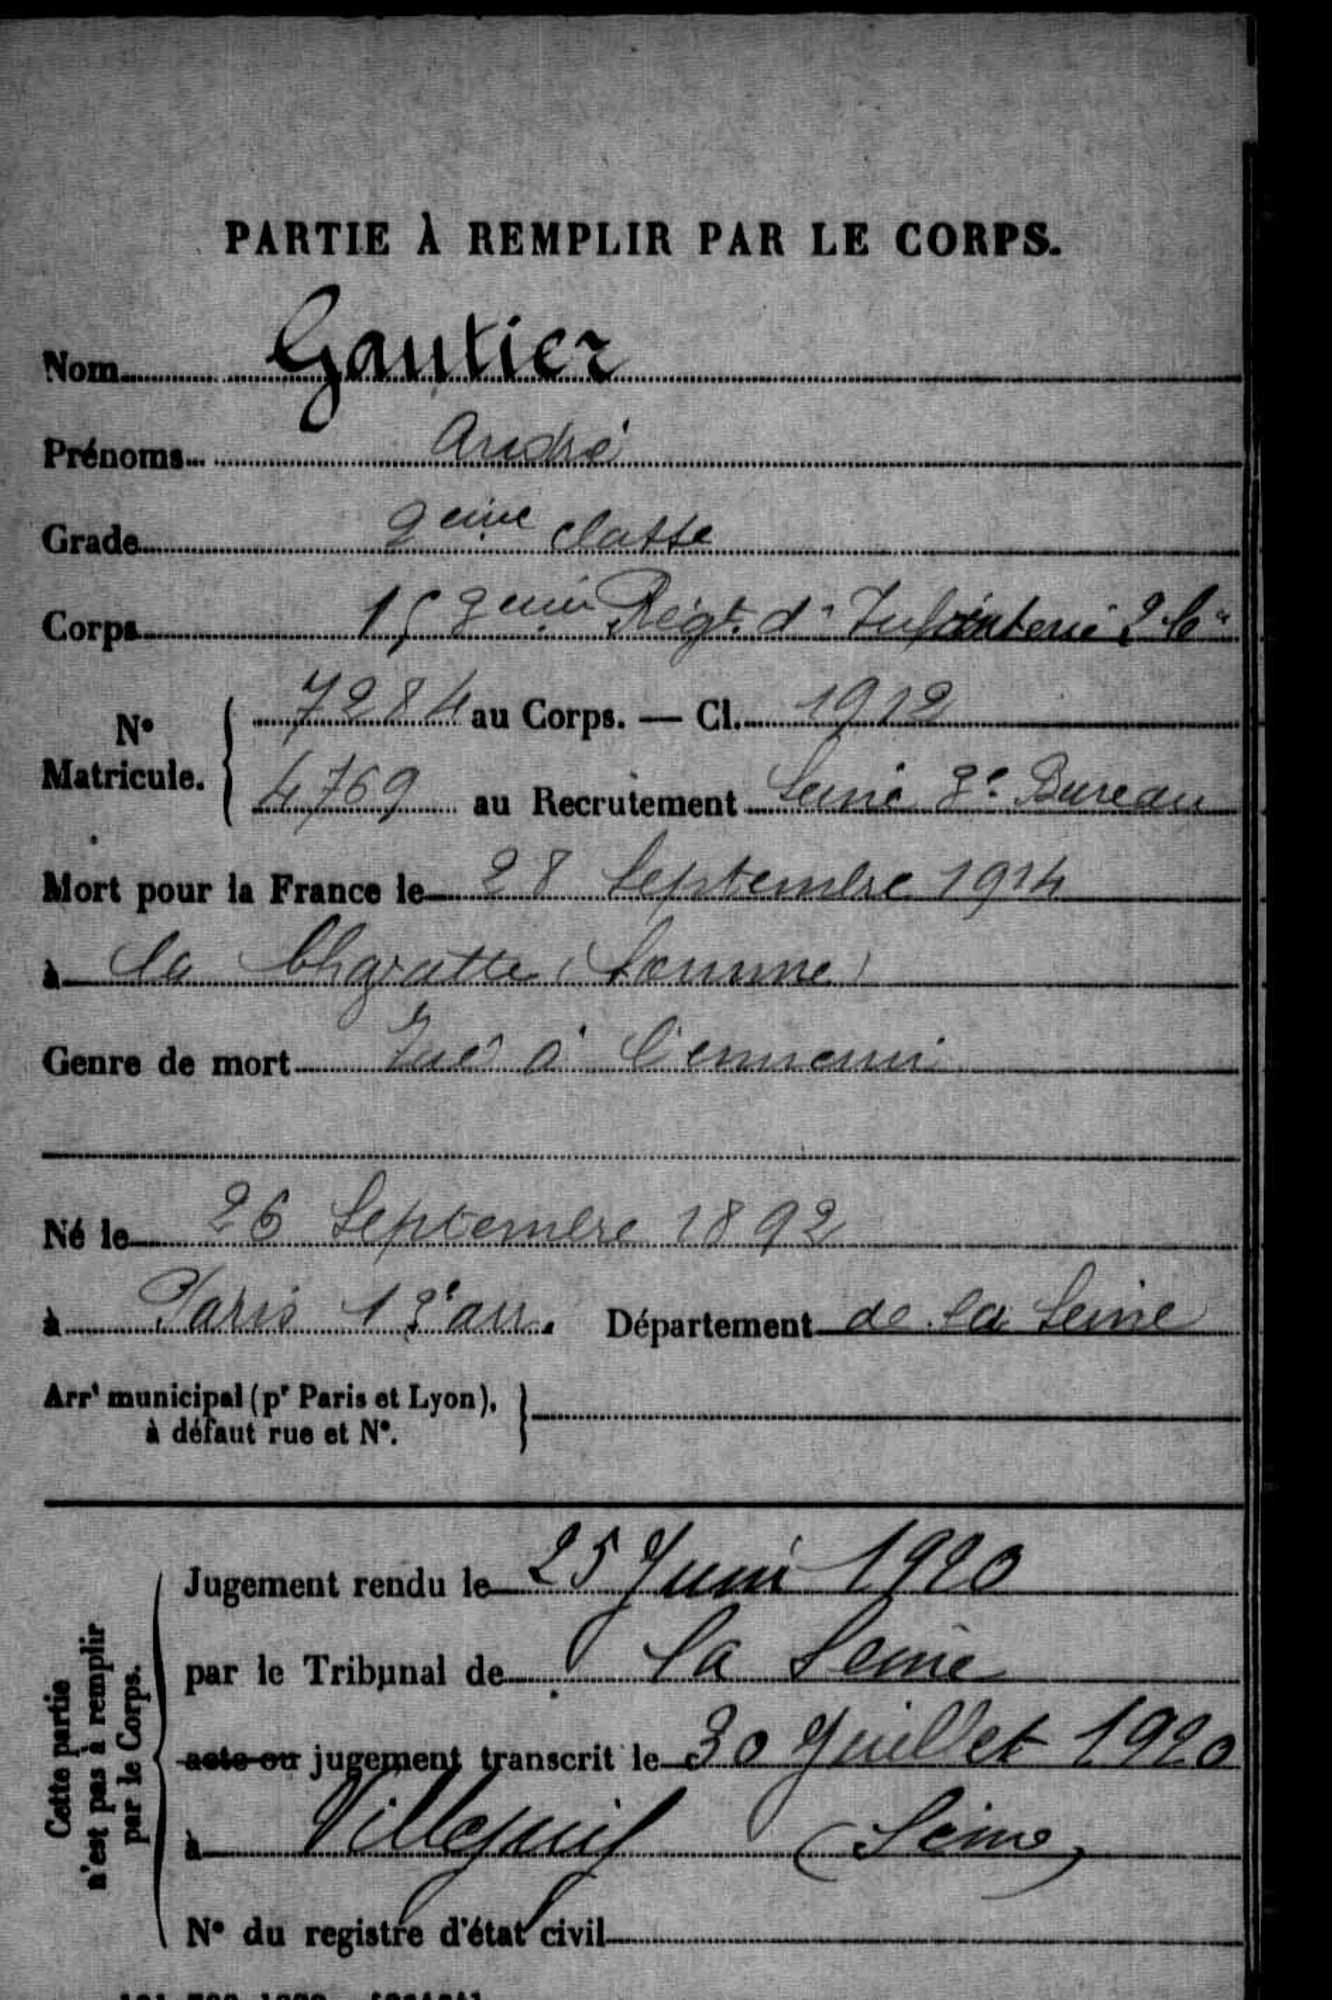 PARTIE À REMPLIR PAR LE CORPS.
Nom Gautier
Prénoms André
Grade 2eme classe
Corps Régt. d'Infanterie
N° Matricule. 7284 au Corps. — Cl. 1912
4769 au Recrutement Seine Bureau
Mort pour la France le 28 Septembre 1914
à la (Somme)
Genre de mort Tué à l'ennemi
Né le 26 Septembre 1892
à Paris arr. Département de la Seine
Arrt municipal (pr Paris et Lyon),
à défaut rue et N°.
Cette partie
n'est pas à remplir
par le Corps.
Jugement rendu le 25 Juin 1920
par le Tribunal de la Seine
acte ou jugement transcrit le 30 Juillet 1920
à Villejuif (Seine)
N° du registre d'état civil